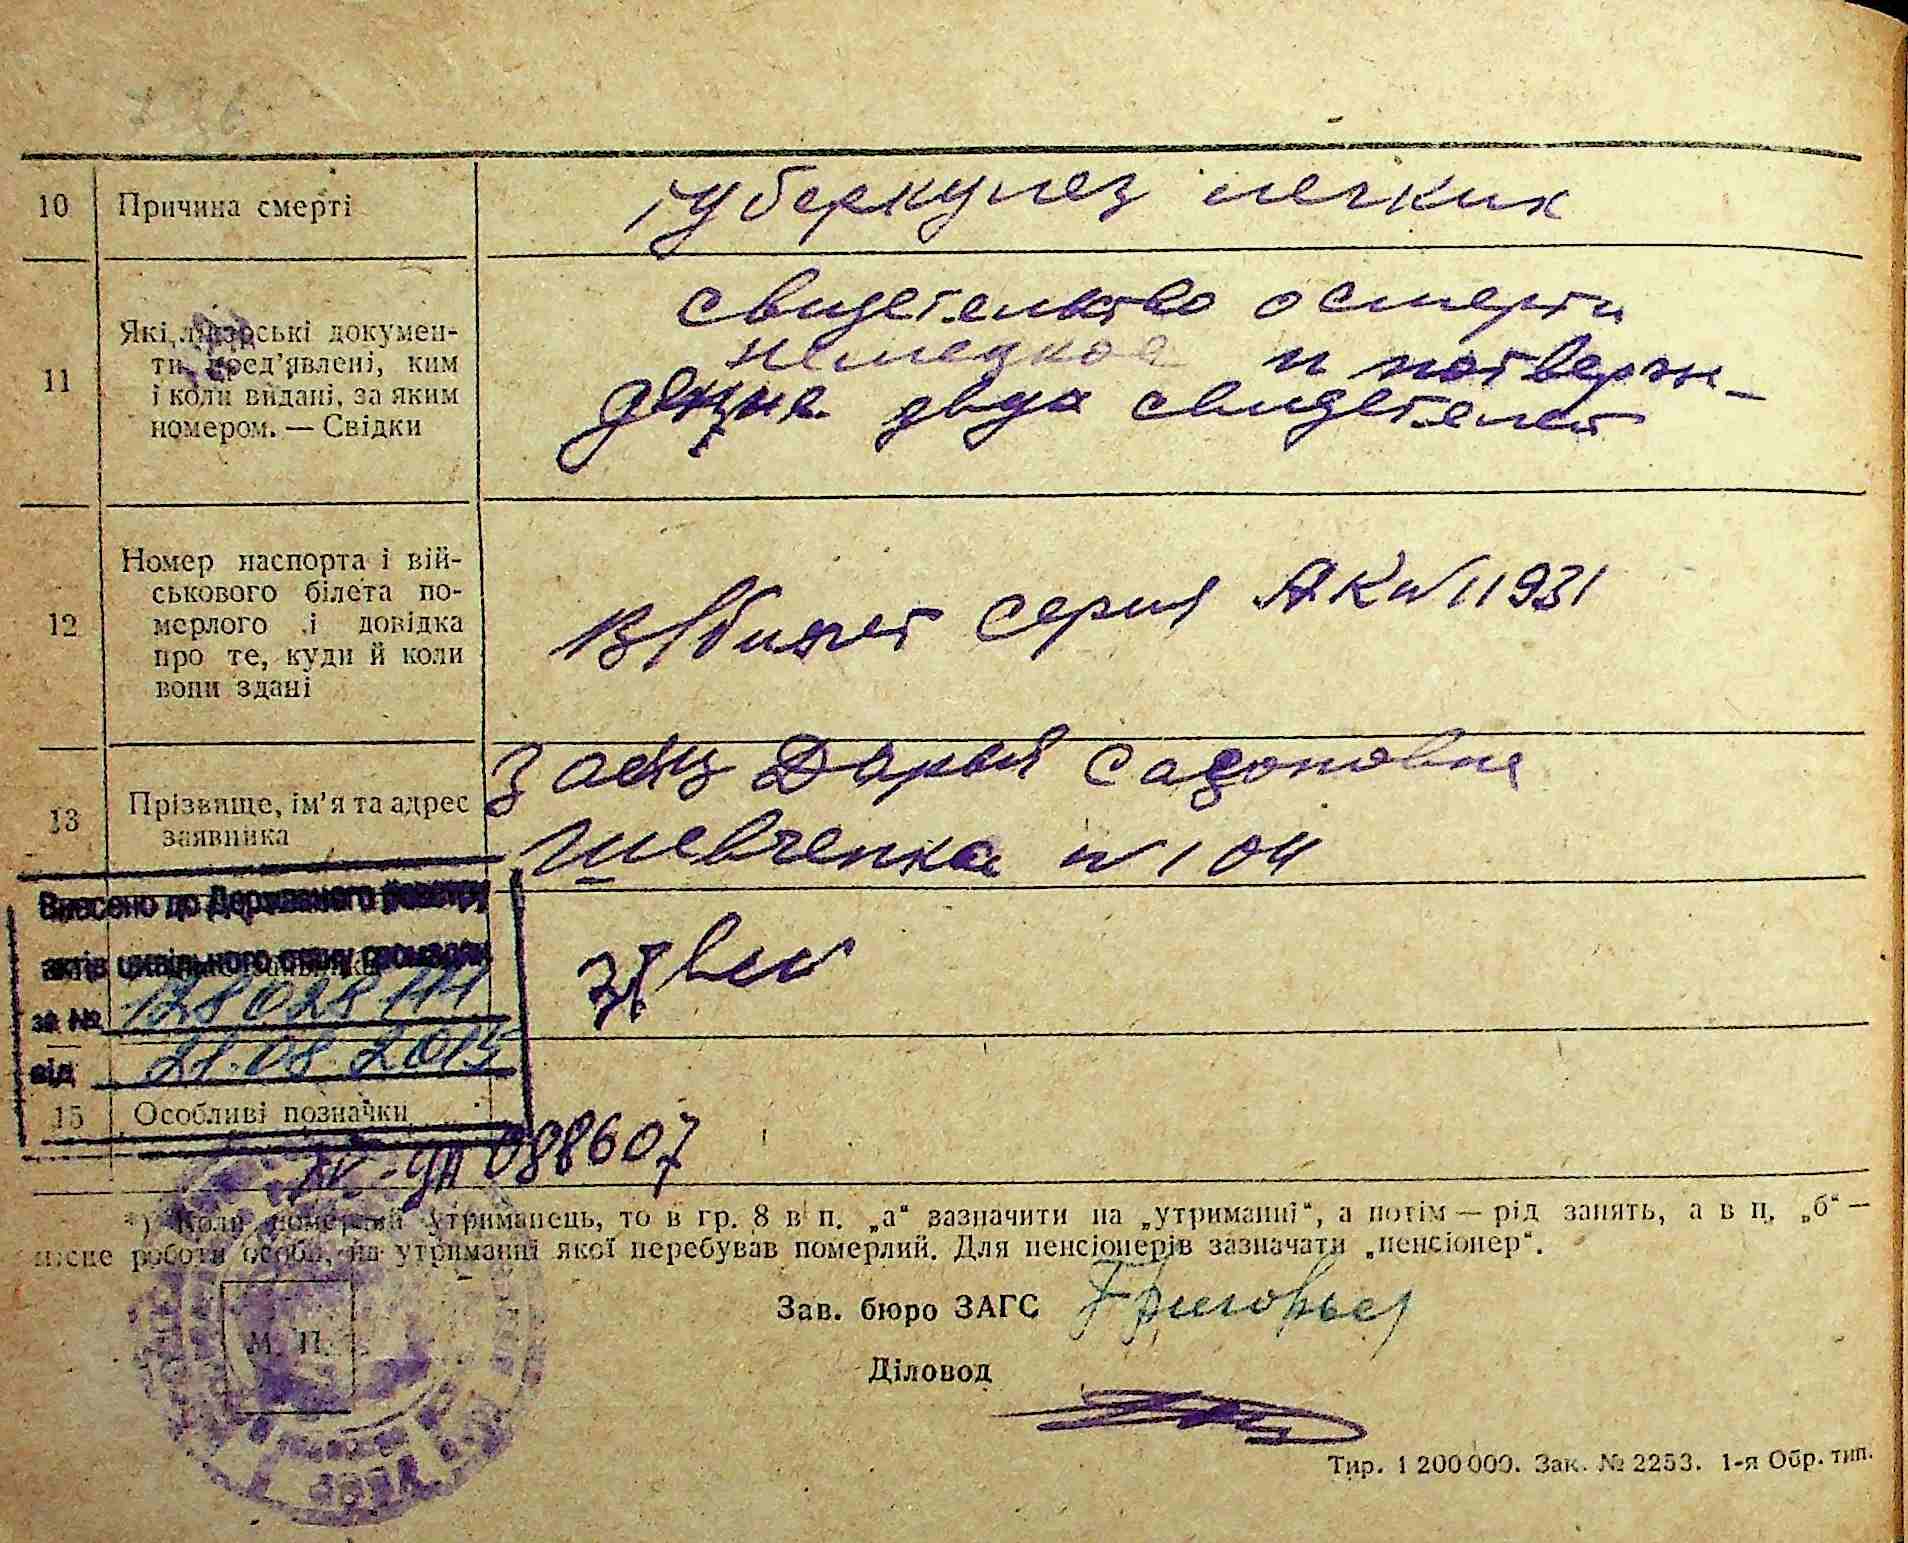 10 Причина смерті
туберкулез легких
11 Які лікарські докумен-
ти пред'явлені, ким
і коли видані, за яким
номером. — Свідки
свидетельство о смерти
немецкое и потверж-
дение двух свидетелей
12 Номер паспорта і вій-
ськового білета по-
мерлого і довідка
про те, куди й коли
вони здані
В/билет серия АК № 11931
13 Прізвище, ім'я та адрес
заявника
Заяц Дарья Сазоновна
Шевченка № 104
Внесено до Державного реєстру
актів цивільного стану громадян
за №
від 21.08.2015
15 Особливі позначки
088607
*) Коли померлий утриманець, то в гр. 8 в п. „а“ зазначити на „утриманні“, а потім — рід занять, а в п. „б“ —
місце роботи особи, на утриманні якої перебував померлий. Для пенсіонерів зазначати „пенсіонер“.
М. П.
Зав. бюро ЗАГС
Діловод
Тир. 1 200 000. Зак. № 2253. 1-я Обр. тип.